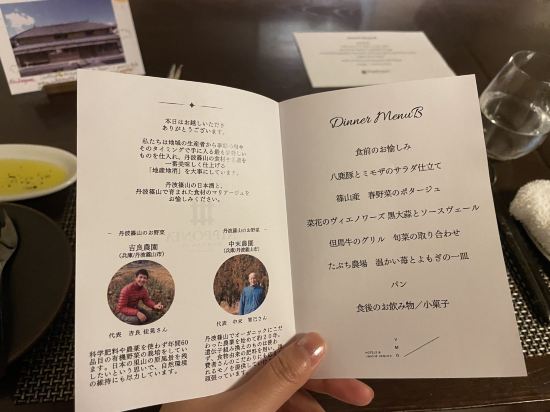 本日はお越しいただき
ありがとうございます。
私たちは地域の生産者から季節の旬や
そのタイミングで手に入る最も美味しい
ものを仕入れ、丹波篠山の食材や酒を
一番美味しく仕上げる
「地産地消」を大事にしています。
丹波篠山の日本酒と、
丹波篠山で育まれた食材のマリアージュを
お愉しみください。
丹波篠山のお野菜
吉良農園
(兵庫/丹波篠山市)
代表 吉良 佳晃さん
科学肥料や農薬を使わず年間60
品目の有機野菜の栽培をしてい
ます。日本の里山の原風景を残
したいという思いで、自然環境
の維持にも尽力しています。
丹波篠山のお野菜
中末農園
(兵庫/丹波篠山市)
代表 中末 智己さん
丹波篠山でオーガニックにこだ
わった農業を始めて約20年。
遺伝子組み換えのものは使わ
ず、食物由来の肥料を
Dinner Menu B
食前のお愉しみ
八鹿豚とミモザのサラダ仕立て
篠山産 春野菜のポタージュ
菜花のヴィエノワーズ 黒大蒜とソースヴェール
但馬牛のグリル 旬菜の取り合わせ
たぶち農場 温かい苺とよもぎの一皿
パン
食後のお飲み物／小菓子
V
M
G